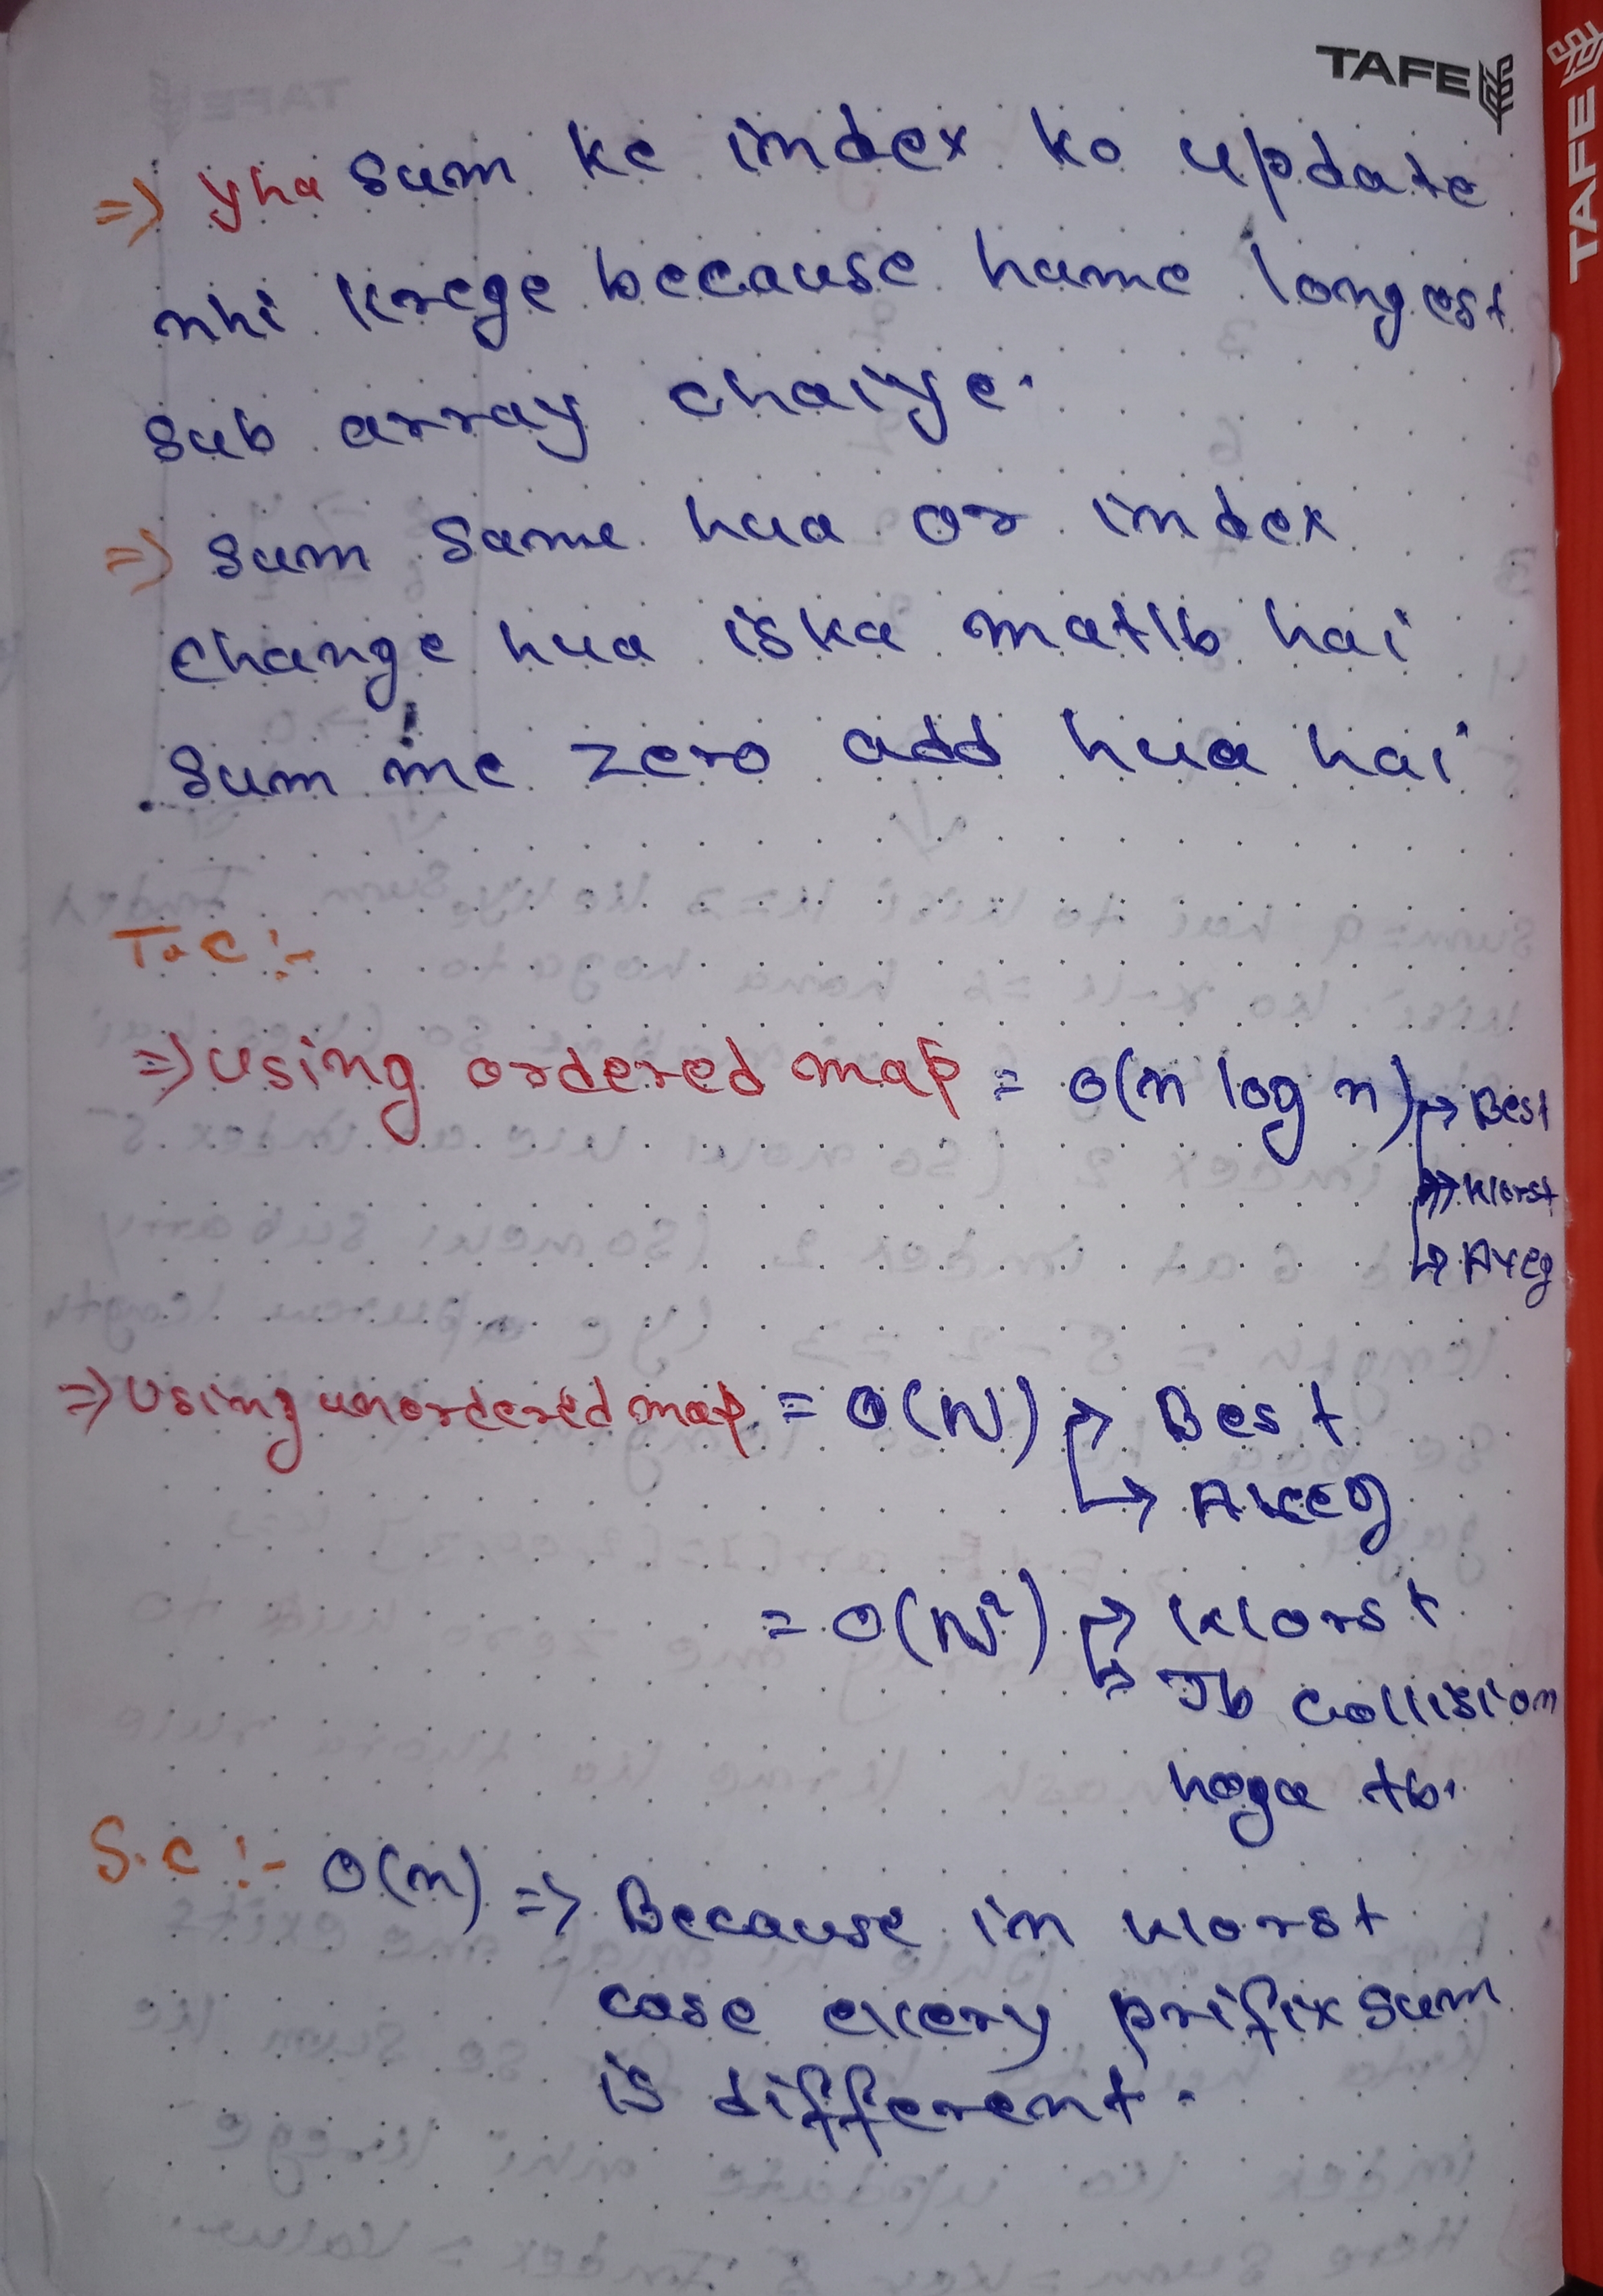 TAFE
TAFE
=) yha sum ke index ko update
nhi krege because hame longest
sub array chaiye.
=) sum same hua or index
change hua iska matlb hai
sum me zero add hua hai
T.C :-
=> using ordered map = O(n log n) → Best
→ Worst
→ Aveg
=> Using unordered map = O(N) → Best
→ Aveg
= O(N²) → Worst
→ Jb collision
hoga tb.
S.C :- O(n) => Because in worst
case every prifix sum
is different.